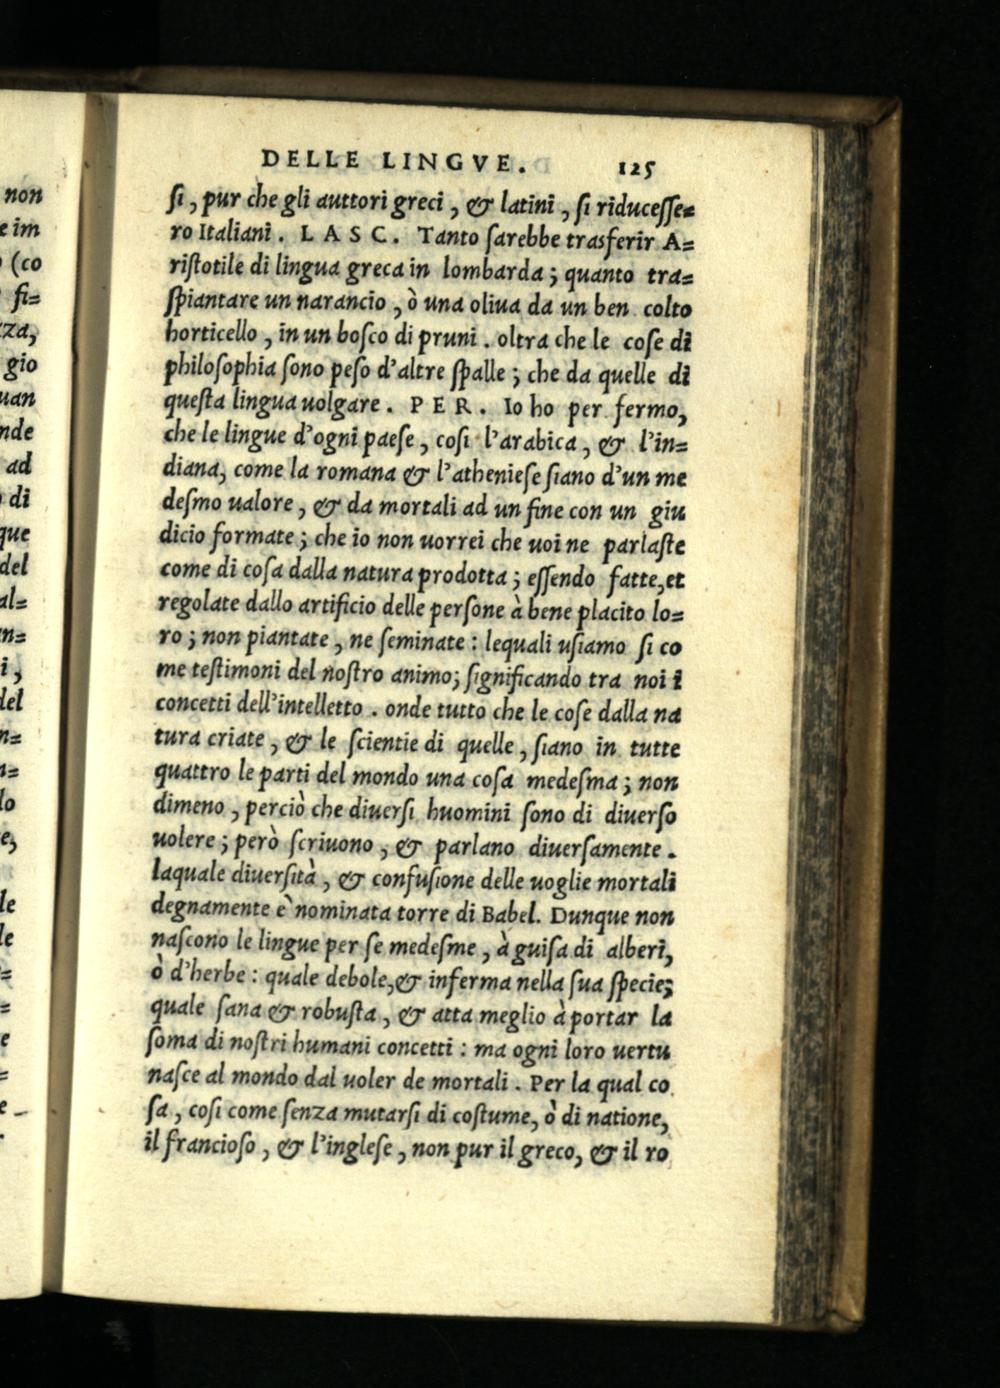 DELLE LINGVE. 125
ſi, pur che gli auttori greci, & latini, ſi riduceſſe=
ro Italiani. LASC. Tanto ſarebbe trasferir A=
riſtotile di lingua greca in lombarda; quanto tra=
ſpiantare un narancio, ò una oliua da un ben colto
horticello, in un boſco di pruni. oltra che le coſe di
philoſophia ſono peſo d'altre ſpalle; che da quelle di
queſta lingua uolgare. PER. Io ho per fermo,
che le lingue d'ogni paeſe, coſi l'arabica, & l'in=
diana, come la romana & l'athenieſe ſiano d'un me
deſmo ualore, & da mortali ad un fine con un giu
dicio formate; che io non uorrei che uoi ne parlaſte
come di coſa dalla natura prodotta; eſſendo fatte, et
regolate dallo artificio delle perſone à bene placito lo=
ro; non piantate, ne ſeminate: lequali uſiamo ſi co
me teſtimoni del noſtro animo; ſignificando tra noi i
concetti dell'intelletto. onde tutto che le coſe dalla na
tura criate, & le ſcientie di quelle, ſiano in tutte
quattro le parti del mondo una coſa medeſma; non
dimeno, perciò che diuerſi huomini ſono di diuerſo
uolere; però ſcriuono, & parlano diuerſamente.
laquale diuerſità, & confuſione delle uoglie mortali
degnamente è nominata torre di Babel. Dunque non
naſcono le lingue per ſe medeſme, à guiſa di alberi,
ò d'herbe: quale debole, & inferma nella ſua ſpecie;
quale ſana & robuſta, & atta meglio à portar la
ſoma di noſtri humani concetti: ma ogni loro uertu
naſce al mondo dal uoler de mortali. Per la qual co
ſa, coſi come ſenza mutarſi di coſtume, ò di natione,
il francioſo, & l'ingleſe, non pur il greco, & il ro
non
e im
(co
fi=
zza,
gio
uan
nde
ad
di
que
del
al=
n=
i,
del
n=
n=
lo
e,
le
le
=
=
e
=
e